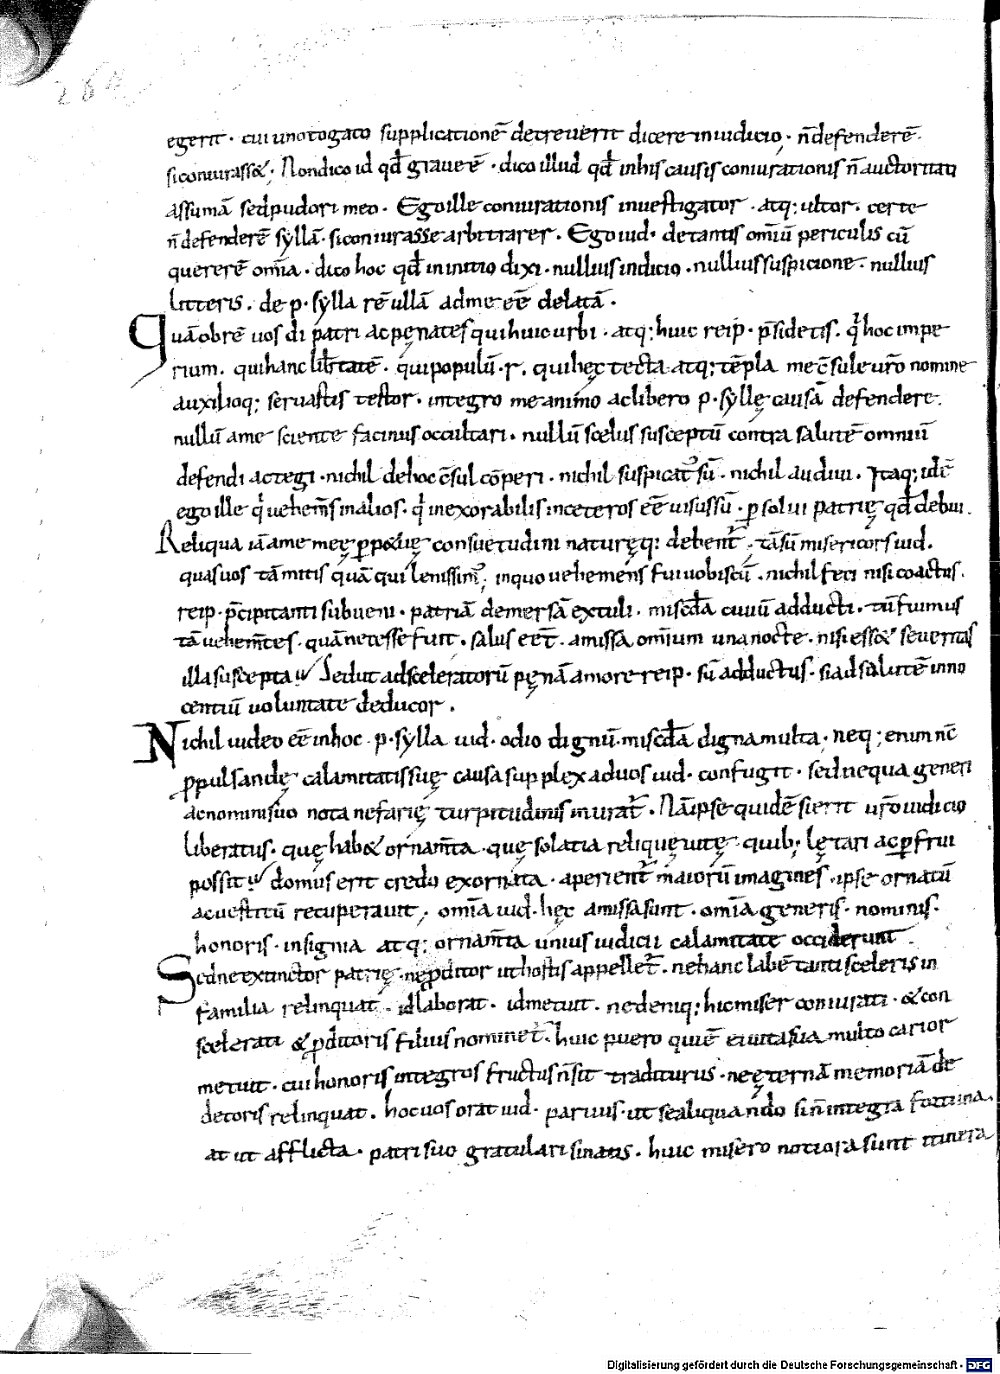 264
egerit · cui uno togato supplicationē decreuerit dicere in iudicio · n̄ defenderē ·
si coniurass& · Non dico id qd̄ graue ē · dico illud qd̄ in his causis coniurationis n̄ auctoritati
assumā sed pudori meo · Ego ille coniurationis inuestigator · atq; ultor · certe
n̄ defenderē syllā · si coniurasse arbitrarer · Ego iud · de tantis omiū periculis cū
quererē om̄ia · dico hoc qd̄ in initio dixi · nullius indicio · nullius suspicione · nullius
litteris · de p · sylla rē ullā ad me eē delatā ·
Quā obrē uos di patri ac pęnates qui huic urbi · atq; huic reip · p̄sidetis · q̇ hoc impe
rium · qui hanc lib̄tatē · qui populū · r · qui hęc tecta atq; tēpla me c̄sule ur̄o nomine
auxilioq; seruastis testor · integro me animo ac libero p · syllę causā defendere ·
nullū a me sciente facinus occultari · nullū scelus susceptū contra salutē omniū
defendi ac tegi · nichil de hoc c̄sul cōperi · nichil suspicat᷒ sū · nichil audiui · Itaq; idē
ego ille q̇ uehem̄s in alios · q̇ inexorabilis in ceteros eē uisus sū · p̱ solui patrię qd̄ debui ·
Reliqua iā a me meę p̱p&uę consuetudini naturęq; debent᷒ · tā sū misericors iud ·
quas uos tā mitis quā qui lenissim᷒ ; in quo uehemens fui uobiscū · nichil feci nisi coactus ·
reip · p̄cipitanti subueni · patriā demersā extuli · misc̄dia ciuiū adducti · tū fuimus
tā uehem̄tes · quā necesse fuit · salus eēt · amissa omium una nocte · nisi ess& seueritas
illa suscepta · Sed ut ad sceleratorū pęnā amore reip · sū adductus · si ad salutē inno
centiū uoluntate deducor ·
Nichil uideo eē in hoc · p · sylla iud · odio dignū · misc̄dia digna multa · neq; enim nc̄
p̱pulsandę calamitatis suę causa supplex ad uos iud · confugit · sed nequa generi
ac nomini suo nota nefarię turpitudinis inurat᷒ · Nā ipse quidē si erit ur̄o iudicio
liberatus · quę hab& ornam̄ta · quę solatia reliquę uitę · quib; lętari ac p̱frui
possit · domus erit credo exornata · aperient᷒ maiorū imagines · ipse ornatū
ac uestitū recuperauit ; om̄ia iud · hęc amissa sunt · om̄ia generis · nominis ·
honoris · insignia atq; ornam̄ta unius iudicii calamitate occiderunt ·
Sed ne extinctor patrię · ne p̱ditor ut hostis appellet᷒ · ne hanc labē tanti sceleris in
familia relinquat · id laborat · id metuit · ne deniq; hic miser coniurati · & con
scelerati & p̱ditoris filius nominet᷒ · huic puero qui ē ei uita sua multo carior
metuit · cui honoris integros fructus n̄ sit traditurus · ne ęternā memoriā de
decoris relinquat · hoc uos orat iud · paruus · ut se aliquando si n̄ integra fortuna ·
at ut afflicta · patri suo gratulari sinatis · huic misero notiora sunt itinera
Digitalisierung gefördert durch die Deutsche Forschungsgemeinschaft · DFG